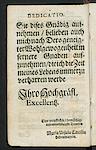 DEDICATIO.
Sie dises Gnädig anzu-
nehmen / belieben auch
mich nach Dero genaig-
ter Wohlgewogenheit in
fernere Gnaden auf-
zunehmen / die ich die Zeit
meines Lebens immer zu
verharren werde
Ihro Hochgräfl.
Excellentz.
Maria